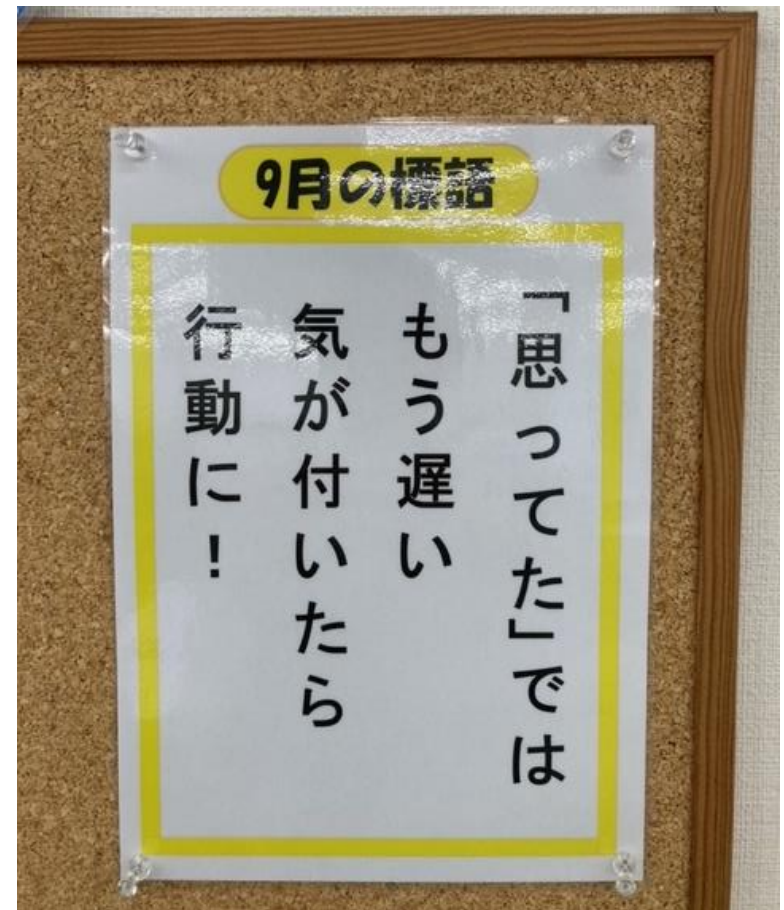 9月の標語
「思ってた」では
もう遅い
気が付いたら
行動に！